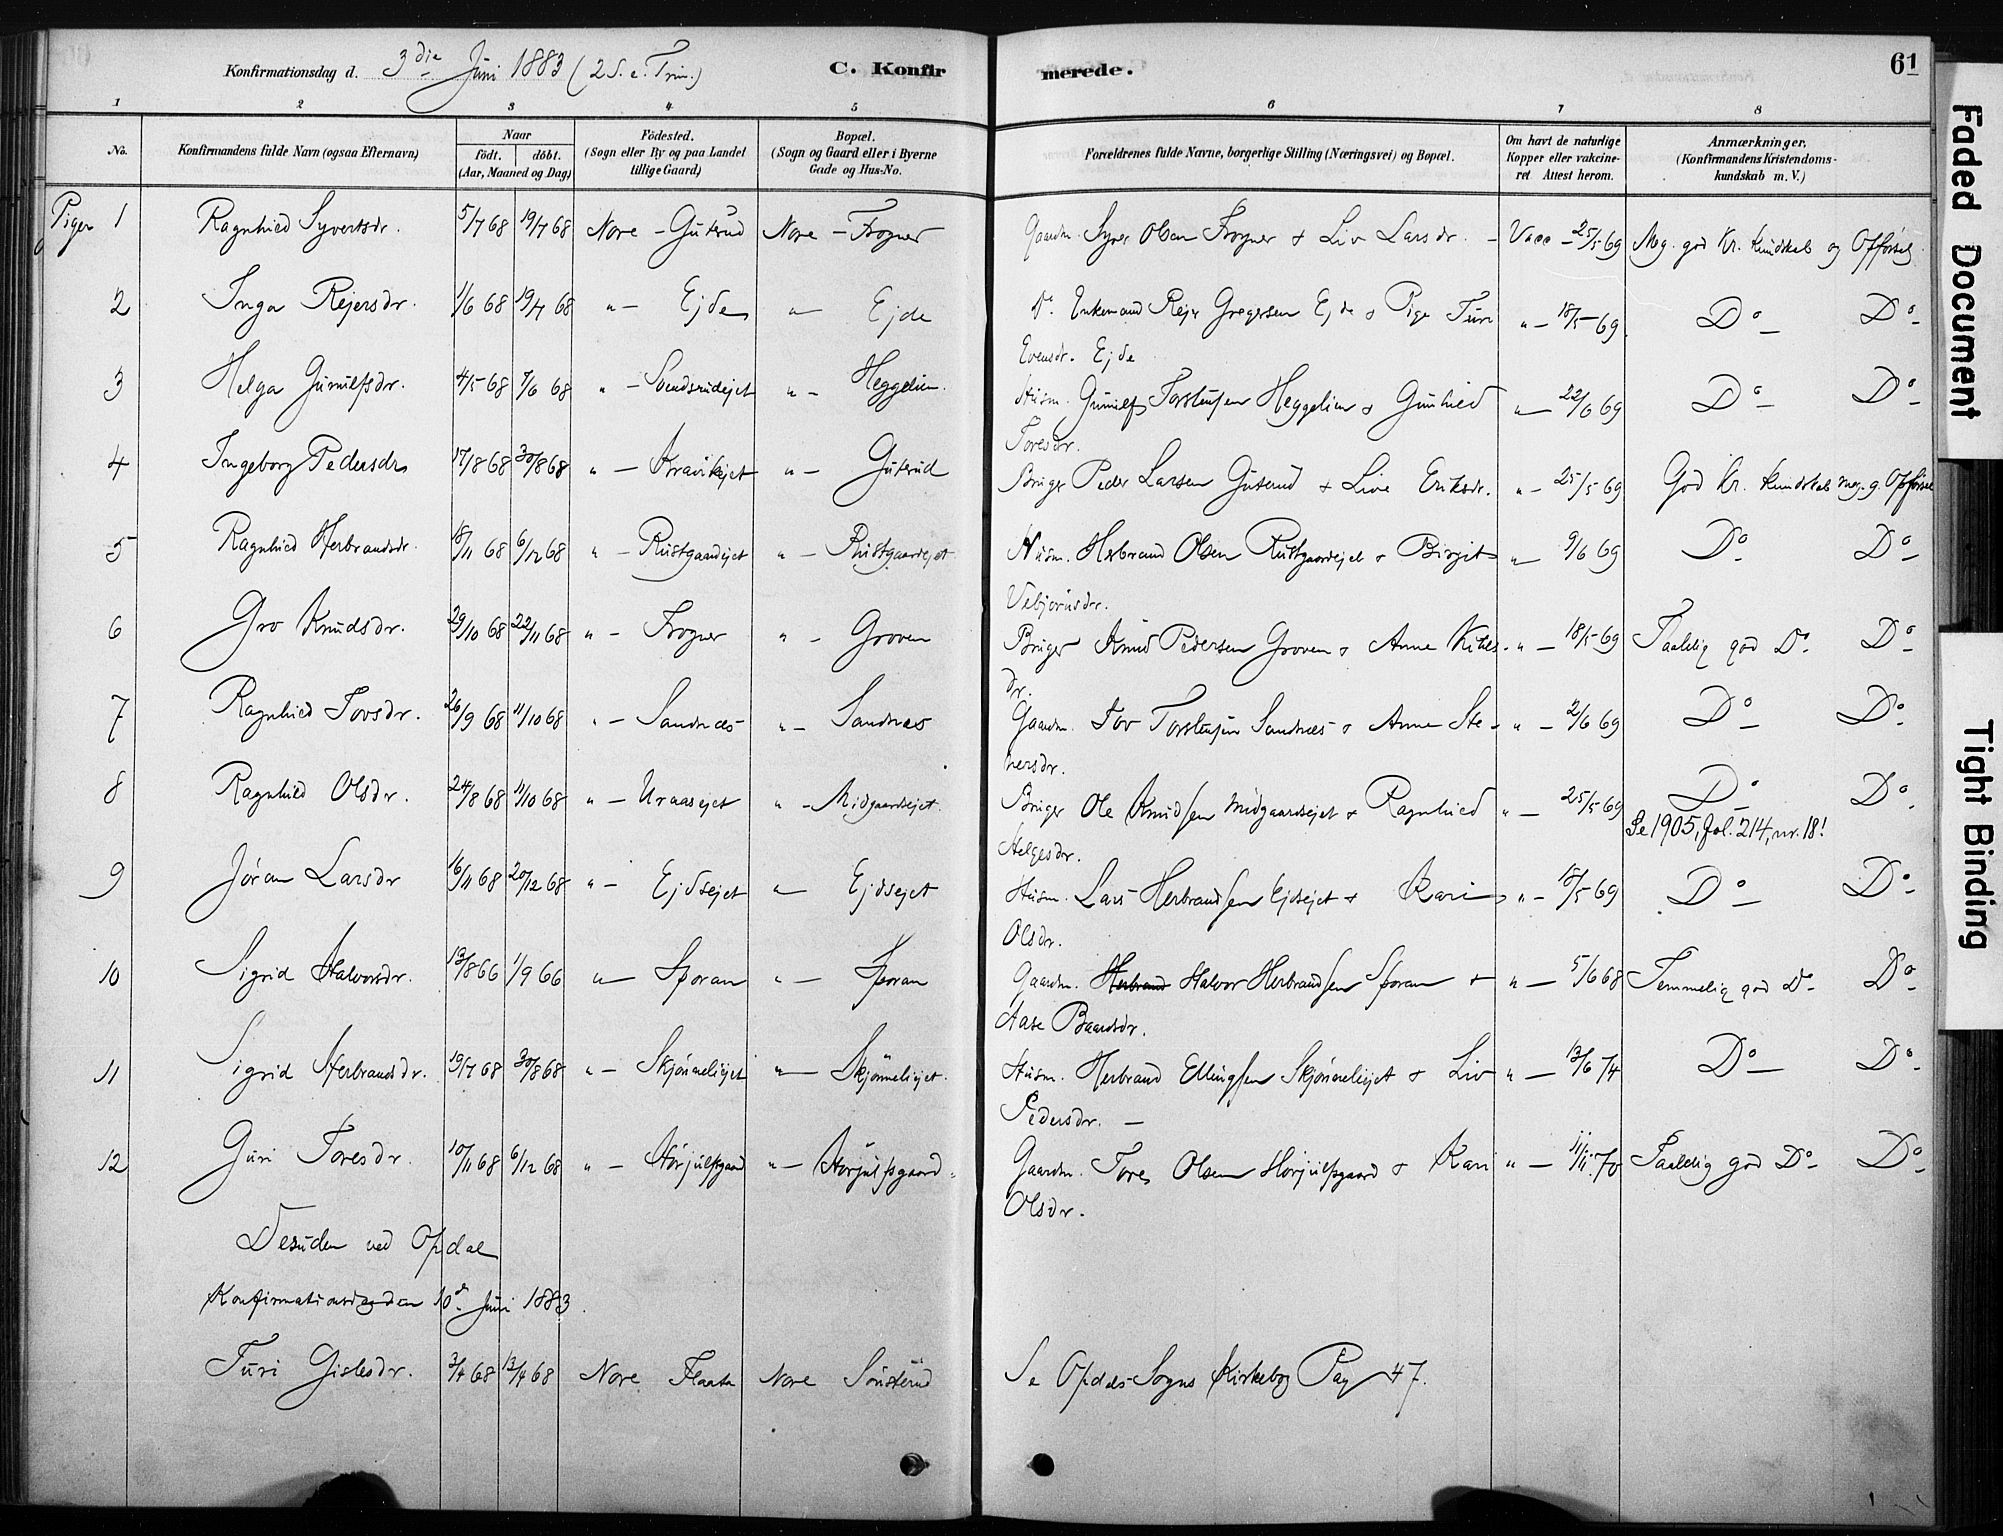 Konfirmationsdag d. 3die Juni 1883 (2 S. e. Trin.) C. Konfir merede. 61
1 2 3 4 5 6 7 8
No.
Konfirmandens fulde Navn (ogsaa Efternavn)
Naar
födt. döbt.
(Aar, Maaned og Dag)
Födested.
(Sogn eller By og paa Landet
tillige Gaard)
Bopæl.
(Sogn og Gaard eller i Byerne
Gade og Hus-No.
Forældrenes fulde Navne, borgerlige Stilling (Næringsvei) og Bopæl.
Om havt de naturlige
Kopper eller vakcine-
ret Attest herom.
Anmærkninger.
(Konfirmandens Kristendoms-
kundskab m. V.)
Piger 1 Ragnhild Syvertsdr. 5/7 68 19/7 68 Nore - Guterud Nore - Frogner Gaardm. Syver Olsen Frogner & Liv Larsdr. - Vacc - 25/5 69 Meg. god Kr. kundskab og Opførsel
2 Inga Rejersdr. 1/6 68 19/7 68 " - Ejde " - Ejde Do. Enkemand Rejer Gregersen Ejde & Pige Turi " - 18/5 69 Do - Do -
Evensdr. Ejde
3 Helga Gunulfsdr. 4/5 68 7/6 68 " - Svendsrudejet " - Heggelien. Husm. Gunulf Torstensen Heggelien & Gunhild " - 22/6 69 Do - Do -
Toresdr.
4 Ingeborg Pedersdr 17/8 68 30/8 68 " - Kravikejet " - Guterud Bruger Peder Larsen Guterud & Live Eriksdr. " - 25/5 69 God Kr. kundskab meg. g. Opførsel
5 Ragnhild Herbrandsdr. 18/11 68 6/12 68 " - Rustgaardejet " - Rustgaardejet Husm. Herbrand Olsen Rustgaardejet & Birgit " - 9/6 69 Do - Do -
Vebjørnsdr.
6 Gro Knudsdr. 29/10 68 22/11 68 " - Frogner " - Groven Bruger Knud Pedersen Groven & Anne Kittels- " - 18/5 69 Taalelig god Do. Do -
dr.
7 Ragnhild Tovsdr. 26/9 68 11/10 68 " - Sandnæs " - Sandnæs Gaardm. Tov Torstensen Sandnæs & Anne Ste- " - 2/6 69 Do - Do -
nersdr.
8 Ragnhild Olsdr. 24/8 68 11/10 68 " - Uraasejet " - Midgaardsejet Bruger Ole Knudsen Midgaardsejet & Ragnhild " - 25/5 69 Do - Do.
Se 1905, fol. 214, nr. 18!
Helgesdr.
9 Jøran Larsdr 16/11 68 20/12 68 " - Ejdsejet " - Ejdsejet Husm. Lars Herbrandsen Ejdsejet & Kari " - 18/5 69 Do - Do -
Olsdr.
10 Sigrid Halvorsdr. 13/8 66 1/9 66 " - Sporan " - Sporan Gaardm. Herbrand Halvor Herbrandsen Sporan & " - 5/6 68 Temmelig god Do - Do -
Aase Baardsdr.
11 Sigrid Herbrandsdr. 19/7 68 30/8 68 " - Skjønneliejet " - Skjønneliejet. Husm. Herbrand Ellingsen Skjønneliejet & Liv " - 13/6 74 Do - Do -
Pedersdr. -
12 Guri Toresdr. 10/11 68 6/12 68 " - Hørjulfsgaard " - Hørjulfsgaard Gaardm. Tore Olsen Hørjulfsgaard & Kari " - 11/11 70 Taalelig god Do - Do -
Olsdr.
Desuden ved Opdal
Konfirmationsdagden 10de Juni 1883.
Turi Gislesdr. 3/4 68 13/4 68 Nore Flaata Nore Sønsterud Se Opdals Sogns Kirkebog Pag 47.
Faded Document
Tight Binding